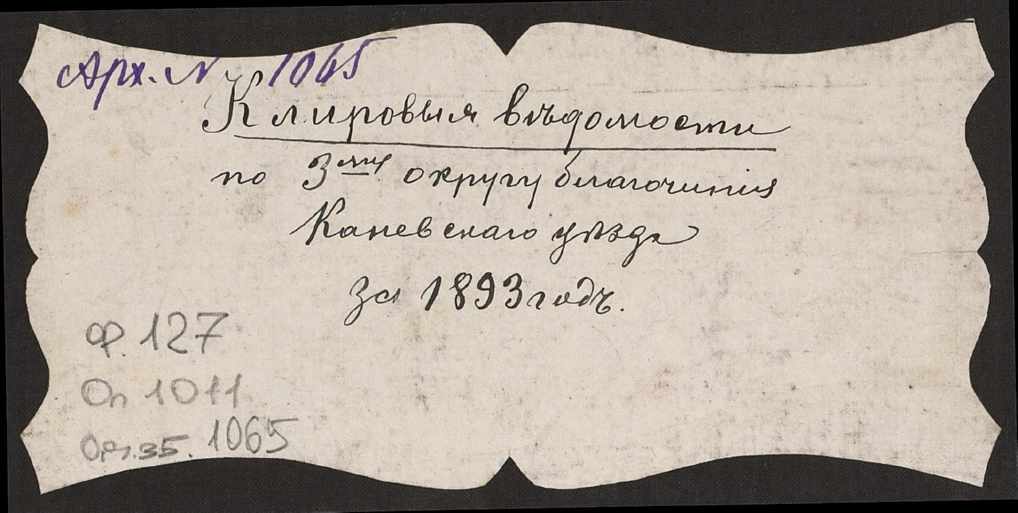 Арх. № 1065
Клировыя вѣдомости
по 3му округу благочинія
Каневскаго уѣзда
за 1893 годъ.
Ф. 127
Оп 1011
1065